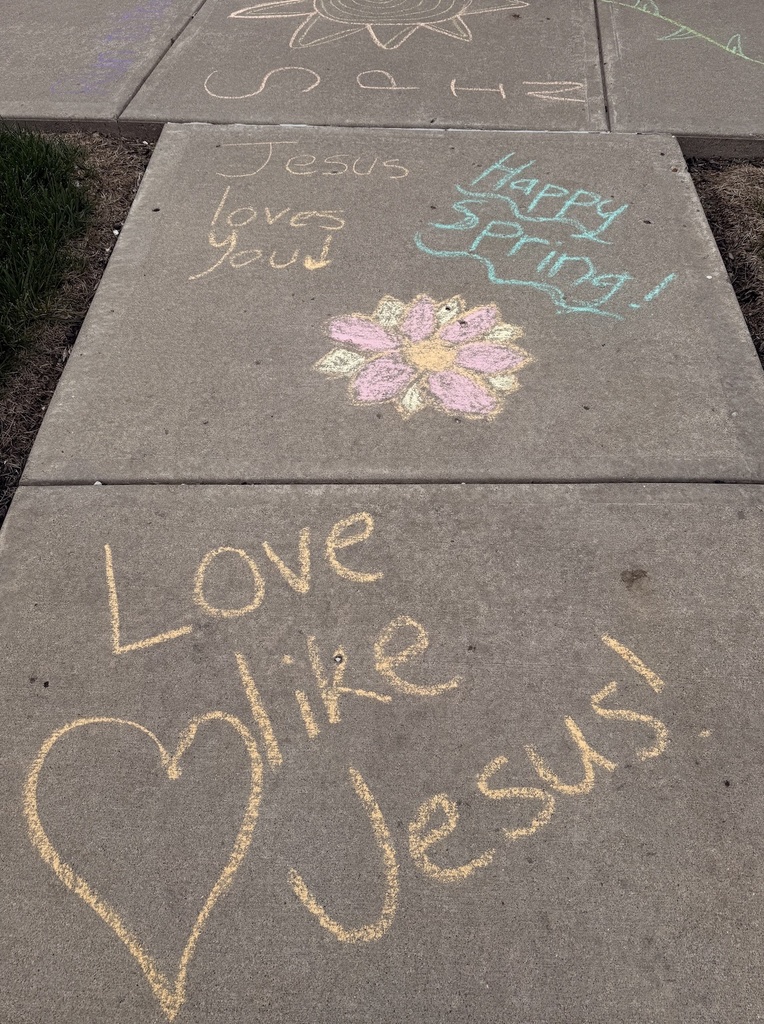 SPIN
Jesus
loves
you
Happy
Spring!
Love
like
Jesus!